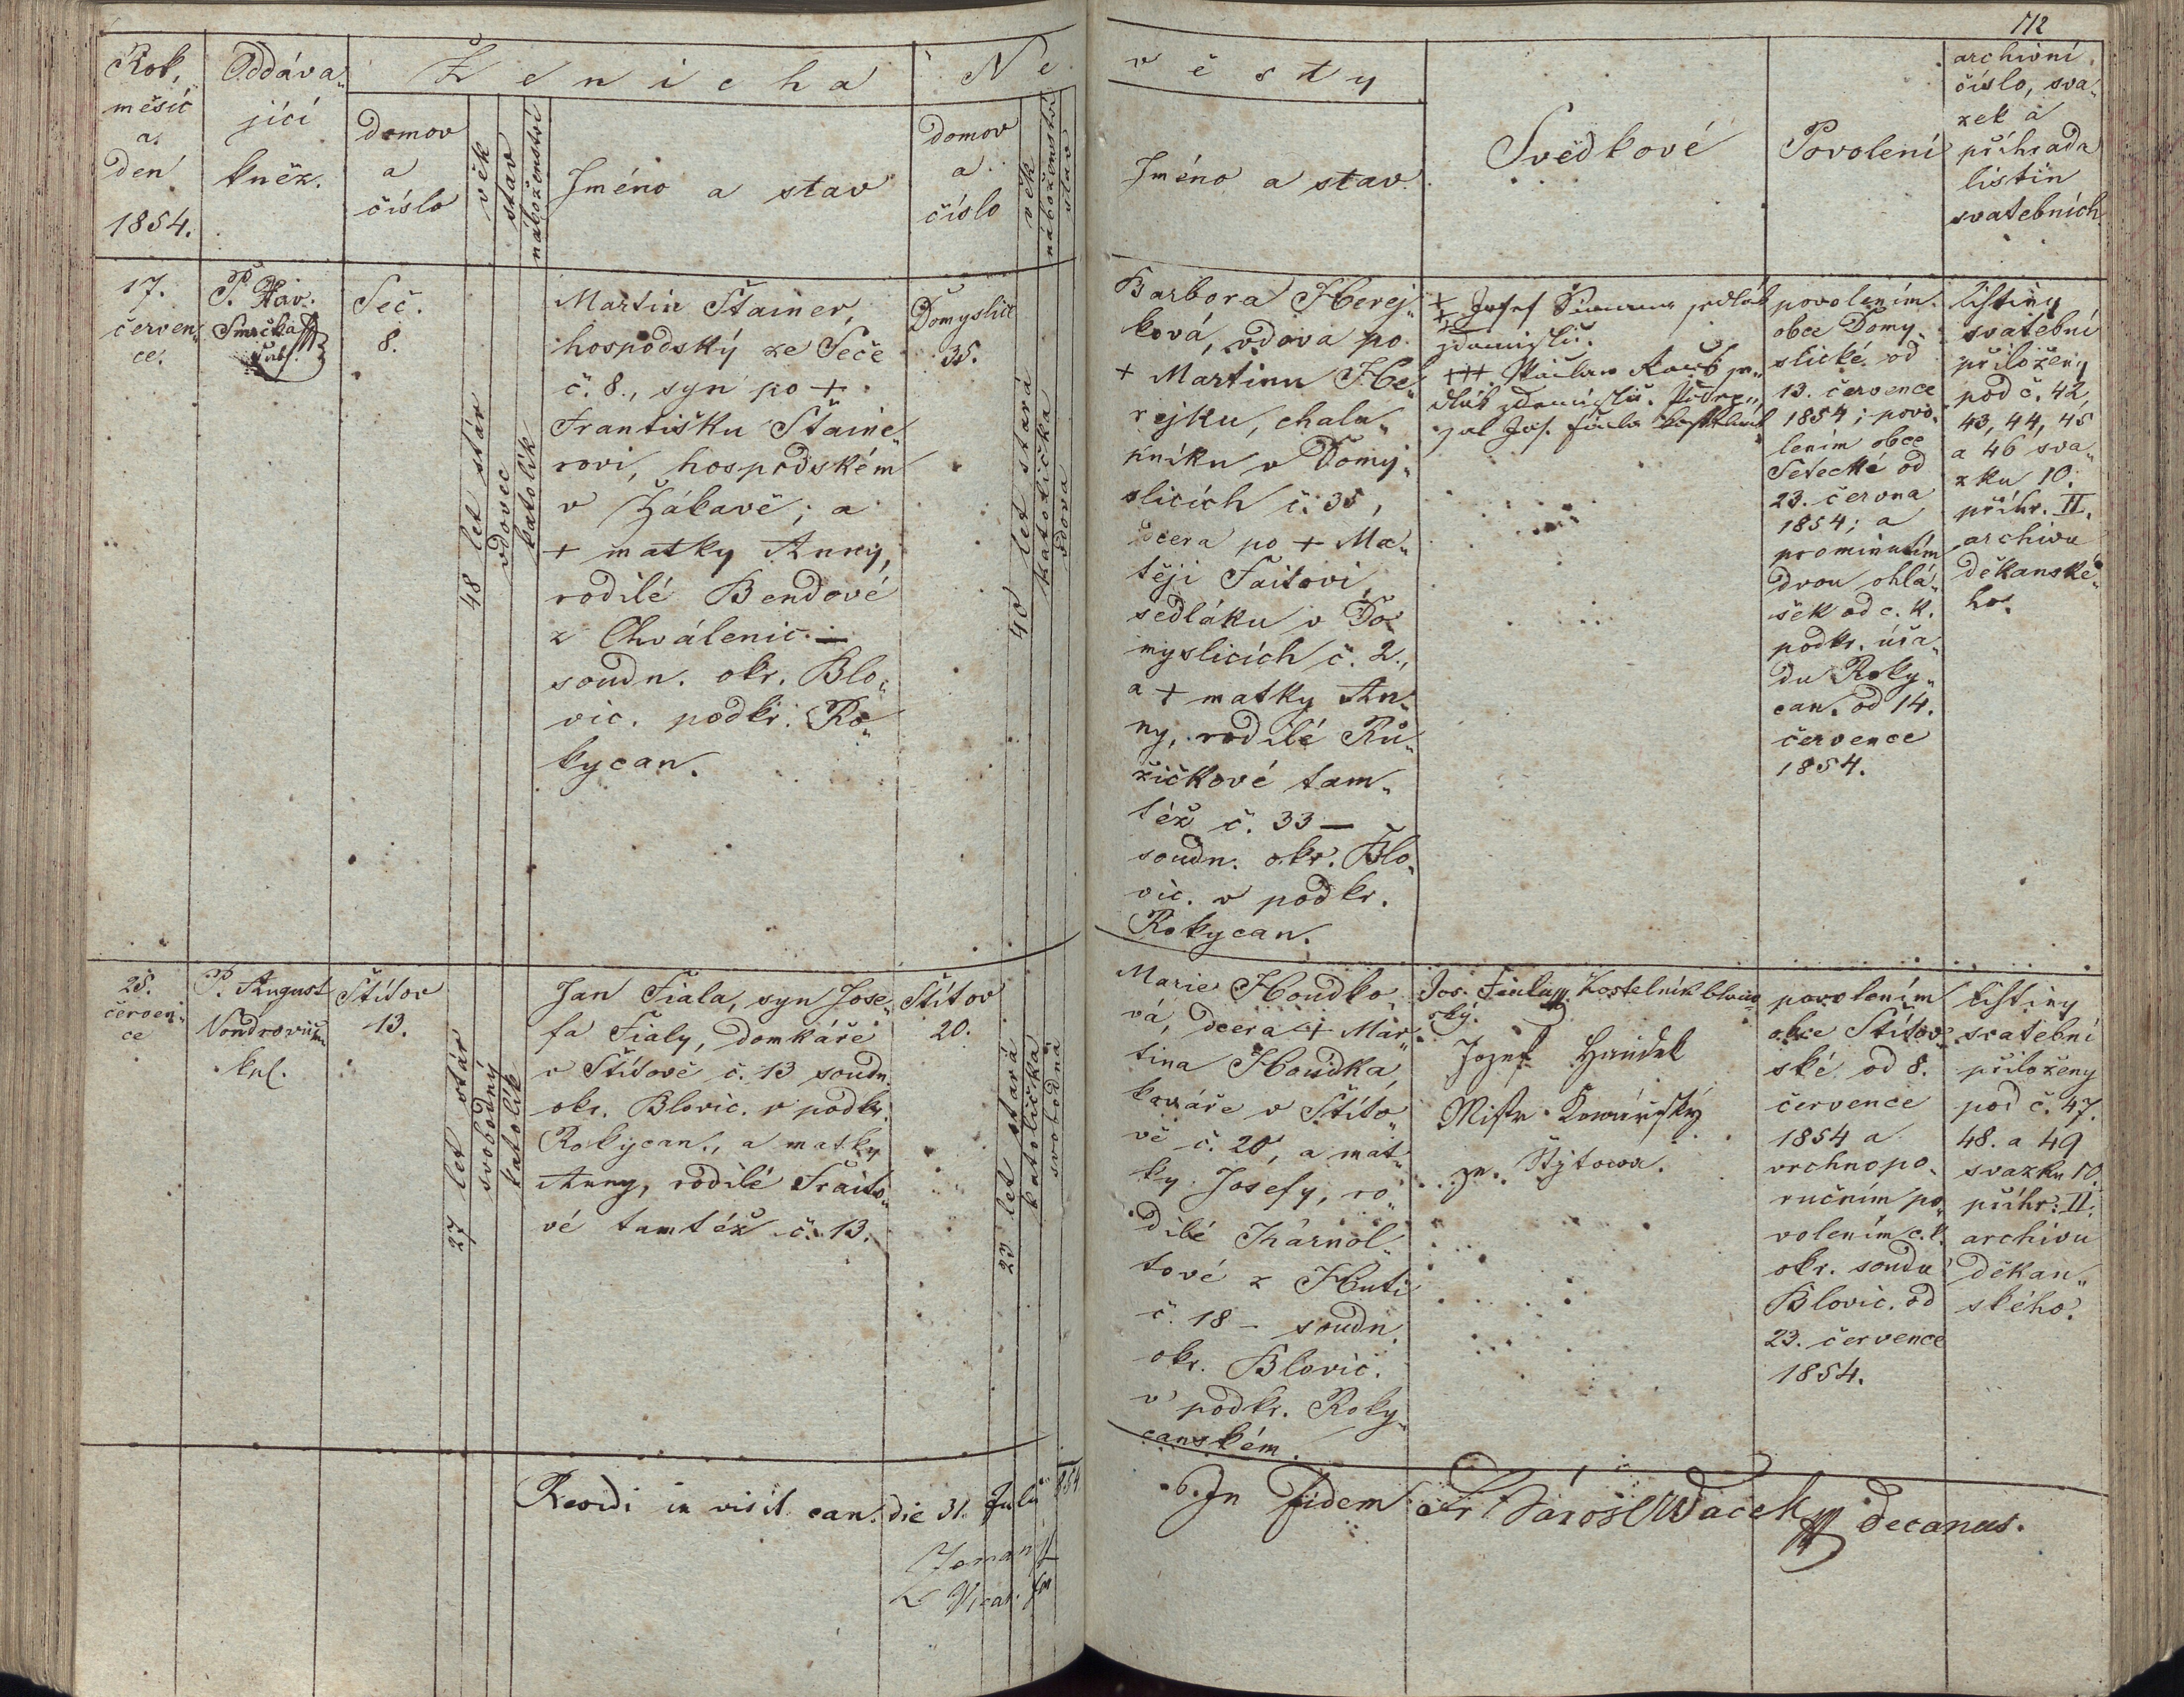 112
Rok,
měsíc
a
den
1854.
Oddáva„
jící
kněz.
Ženicha
domov
a
číslo
věk
stav
náboženství
Jméno a stav
Ne
domov
a
číslo
věk
náboženství
stav
věsty
Jméno a stav.
Svědkové
Povolení
archivní
číslo, sva„
zek a
příhrada
listin
svatebních
17.
červen„
ce.
P. Fr. Jar.
Smrčka
Seč.
8.
48 let stár
vdovec
katolík
Martin Štainer,
hospodský ze Seče
č. 8., syn po +
Františku Štaine„
rovi, hospodském
v Žákavě; a
+ matky Anny,
rodilé Bendové
z Chválenic. —
soudn. okr. Blo„
vic. podkr. Ro„
kycan.
Domyslic
35.
40 let stará
katolička
vdova
Barbora Herej„
ková, vdova po
+ Martinu He„
rejku, chalu„
pníku v Domy„
slicích č. 35,
dcera po + Ma„
těji Faitovi,
sedláku v Do„
myslicích č. 2.,
a + matky An„
ny, rodilé Rů„
žičkové tam„
též č. 33 —
soudn. okr. Blo„
vic. v podkr.
Rokycan.
+ Josef
+++ Václav
povolením
obce Domy„
slické od
13. července
1854; povo„
lením obce
Sečecké od
23. června
1854; a
prominutím
dvou ohlá„
šek od c. k.
podkr. úřa„
du Roky„
can. od 14.
července
1854.
listiny
svatební
přiloženy
pod č. 42,
43, 44, 45
a 46 sva„
zku 10.
příhr. II.
archivu
děkanské„
ho.
25.
červen„
ce
P. August
kpl.
Štítov
13.
27 let stár
svobodný
katolík
Jan Fiala, syn Jose„
fa Fialy, domkáře
v Štítově č. 13 soudn.
okr. Blovic. v podkr.
Rokycan., a matky
Anny, rodilé Fraito„
vé tamtéž č. 13.
Štítov
20.
23 let stará
katolička
svobodná
Marie Houdko„
vá, dcera + Mar„
tina Houdka,
kováře v Štíto„
vě č. 20, a mat„
ky Josefy, ro„
dilé Kárnol„
tové z Huti
č. 18 – soudn.
okr. Blovic.
v podkr. Roky„
canském.
Jos. Fiala Kostelník
Jozef Haudek
Mistr Kowářský
ze Štýtowa.
povolením
obce Štítov„
ské od 8.
července
1854 a
vrchnopo„
ručním po„
volením c. k.
okr. soudu
Blovic. od
23. července
1854.
listiny
svatební
přiloženy
pod č. 47.
48. a 49
svazku 10.
příhr. II.
archivu
děkan„
ského.
Revidi in visit. can. die 31. Julii 854
Zeman
Vicar.
In fidem Fr. Jarosl Wacek decanus.